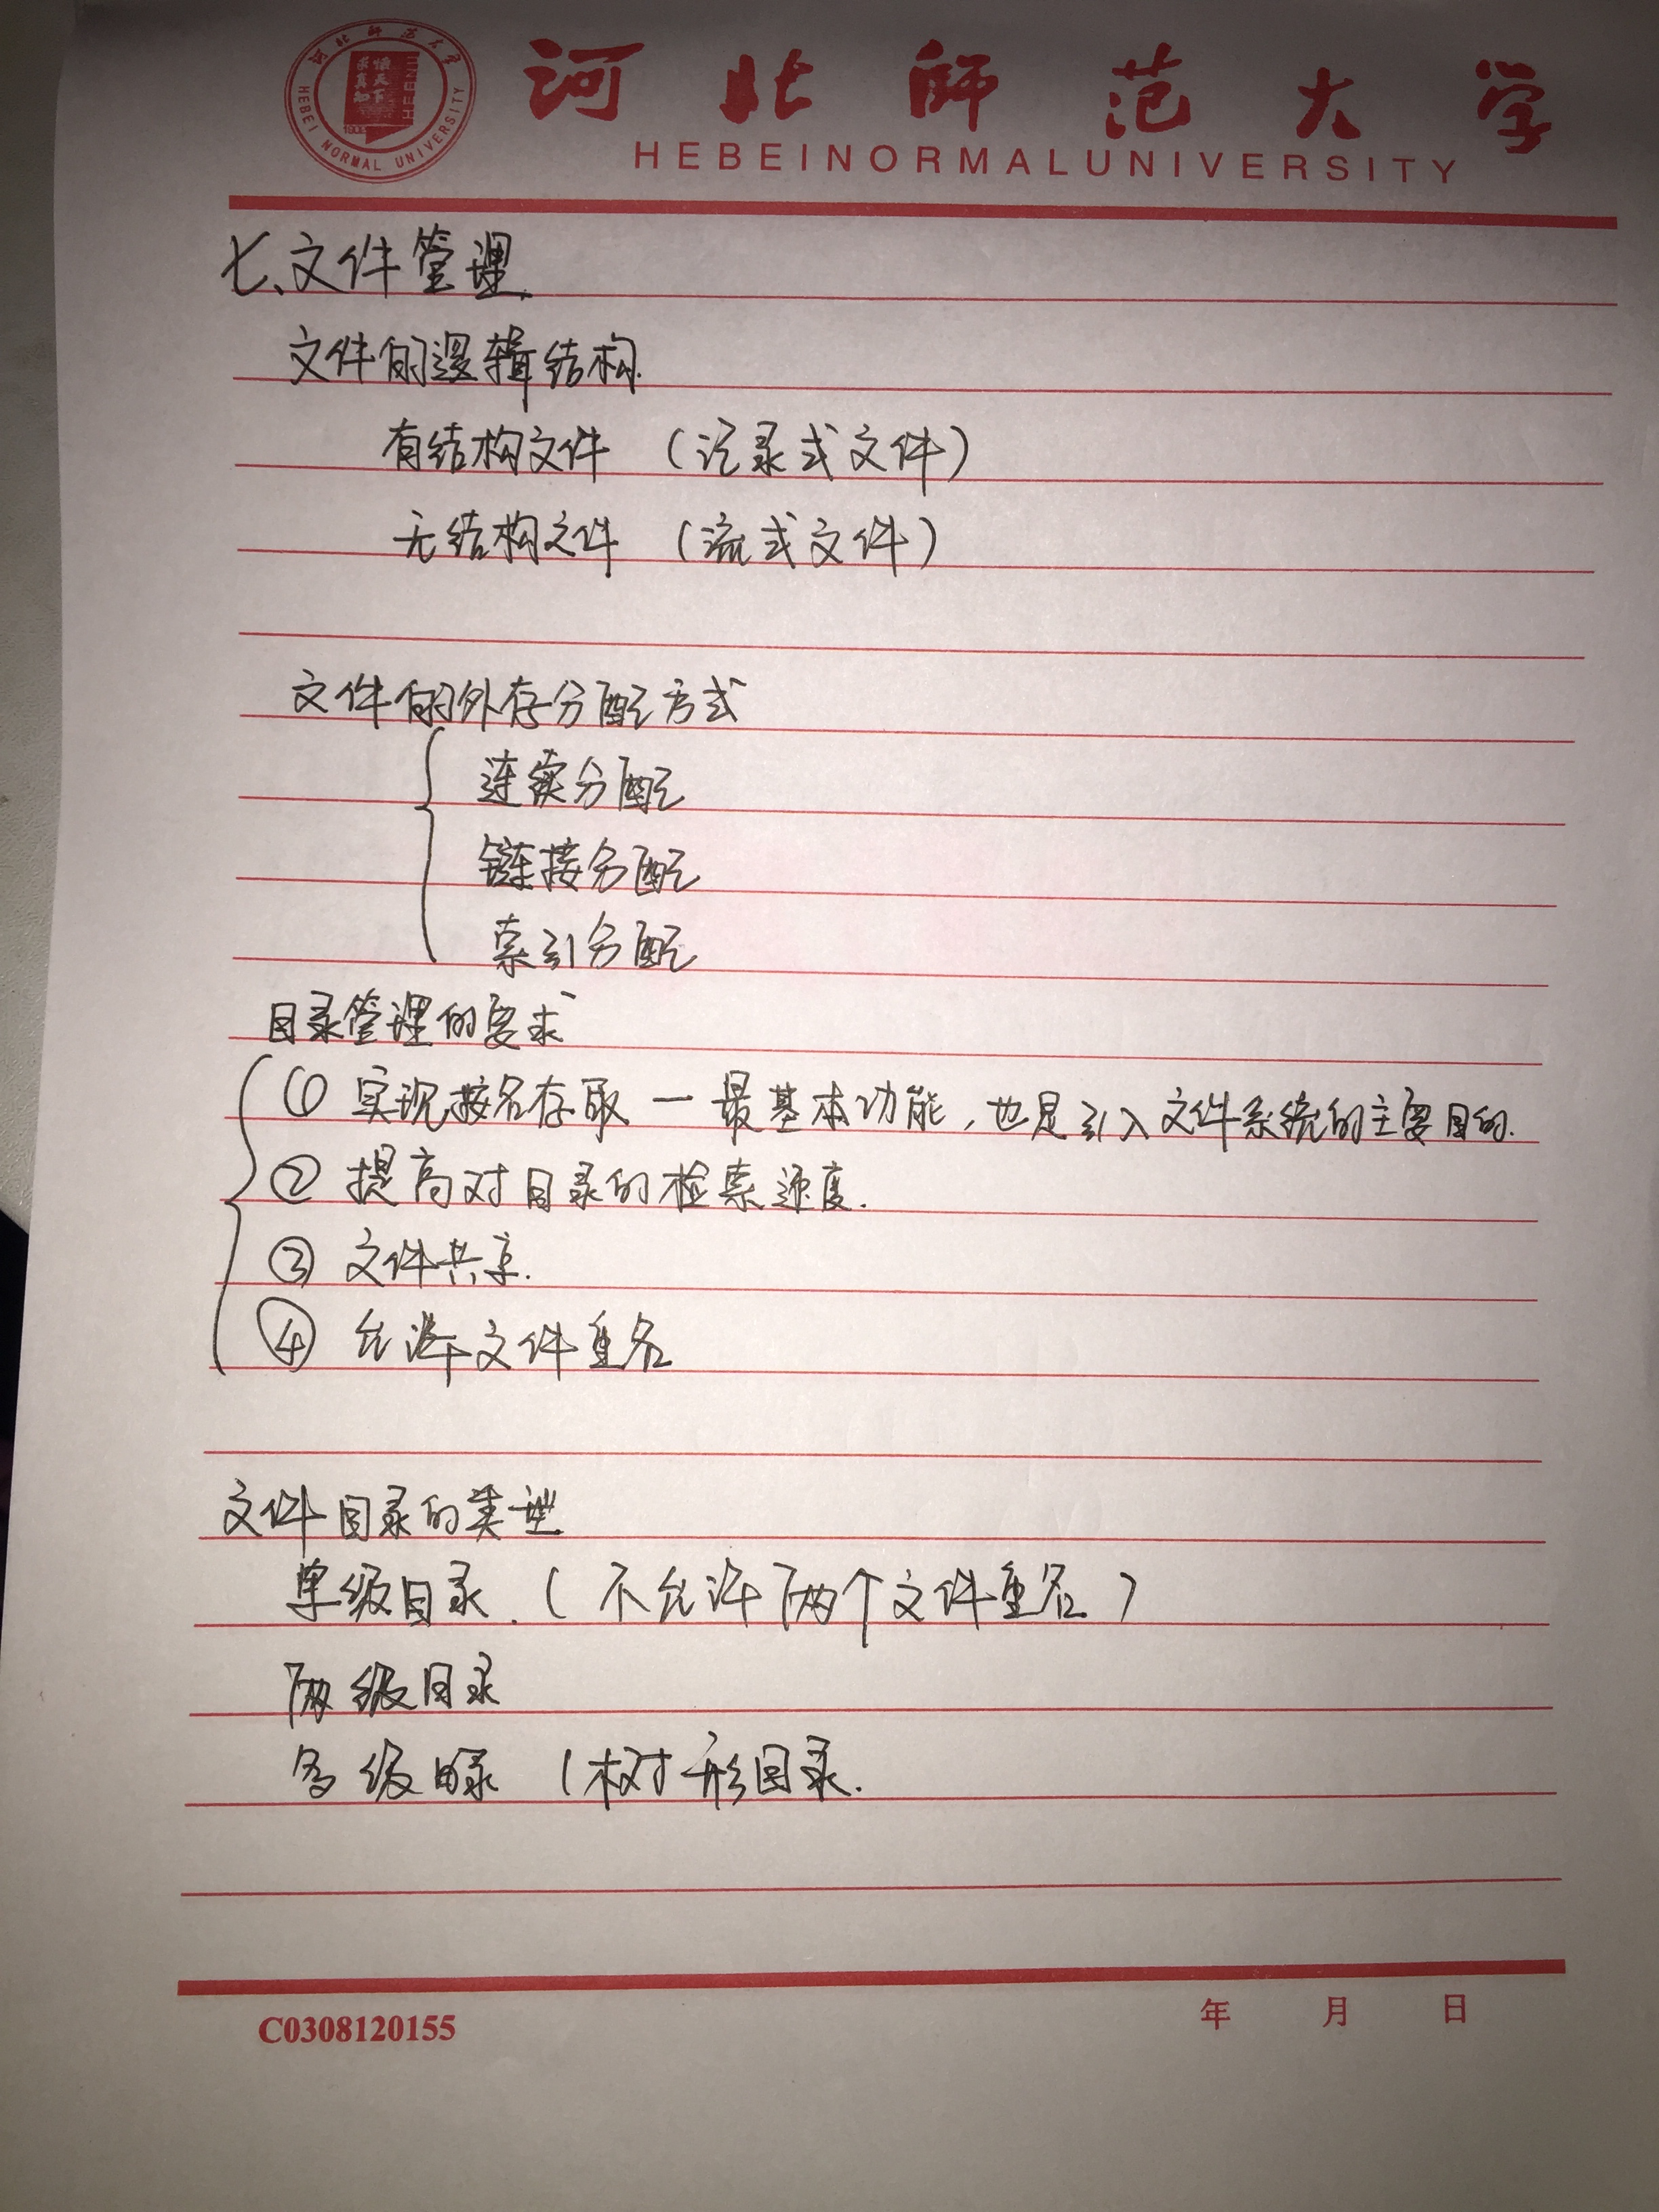 河北师范大学
HEBEI NORMAL UNIVERSITY
1902
HEBEINORMALUNIVERSITY
河北师范大学
七、文件管理.
文件的逻辑结构.
有结构文件 (记录式文件)
无结构文件 (流式文件)
文件的外存分配方式
连续分配
链接分配
索引分配
目录管理的要求
① 实现按名存取 — 最基本功能,也是引入文件系统的主要目的.
② 提高对目录的检索速度.
③ 文件共享.
④ 允许文件重名
文件目录的类型
单级目录.(不允许两个文件重名)
两级目录
多级目录 (树形目录.
C0308120155
年 月 日